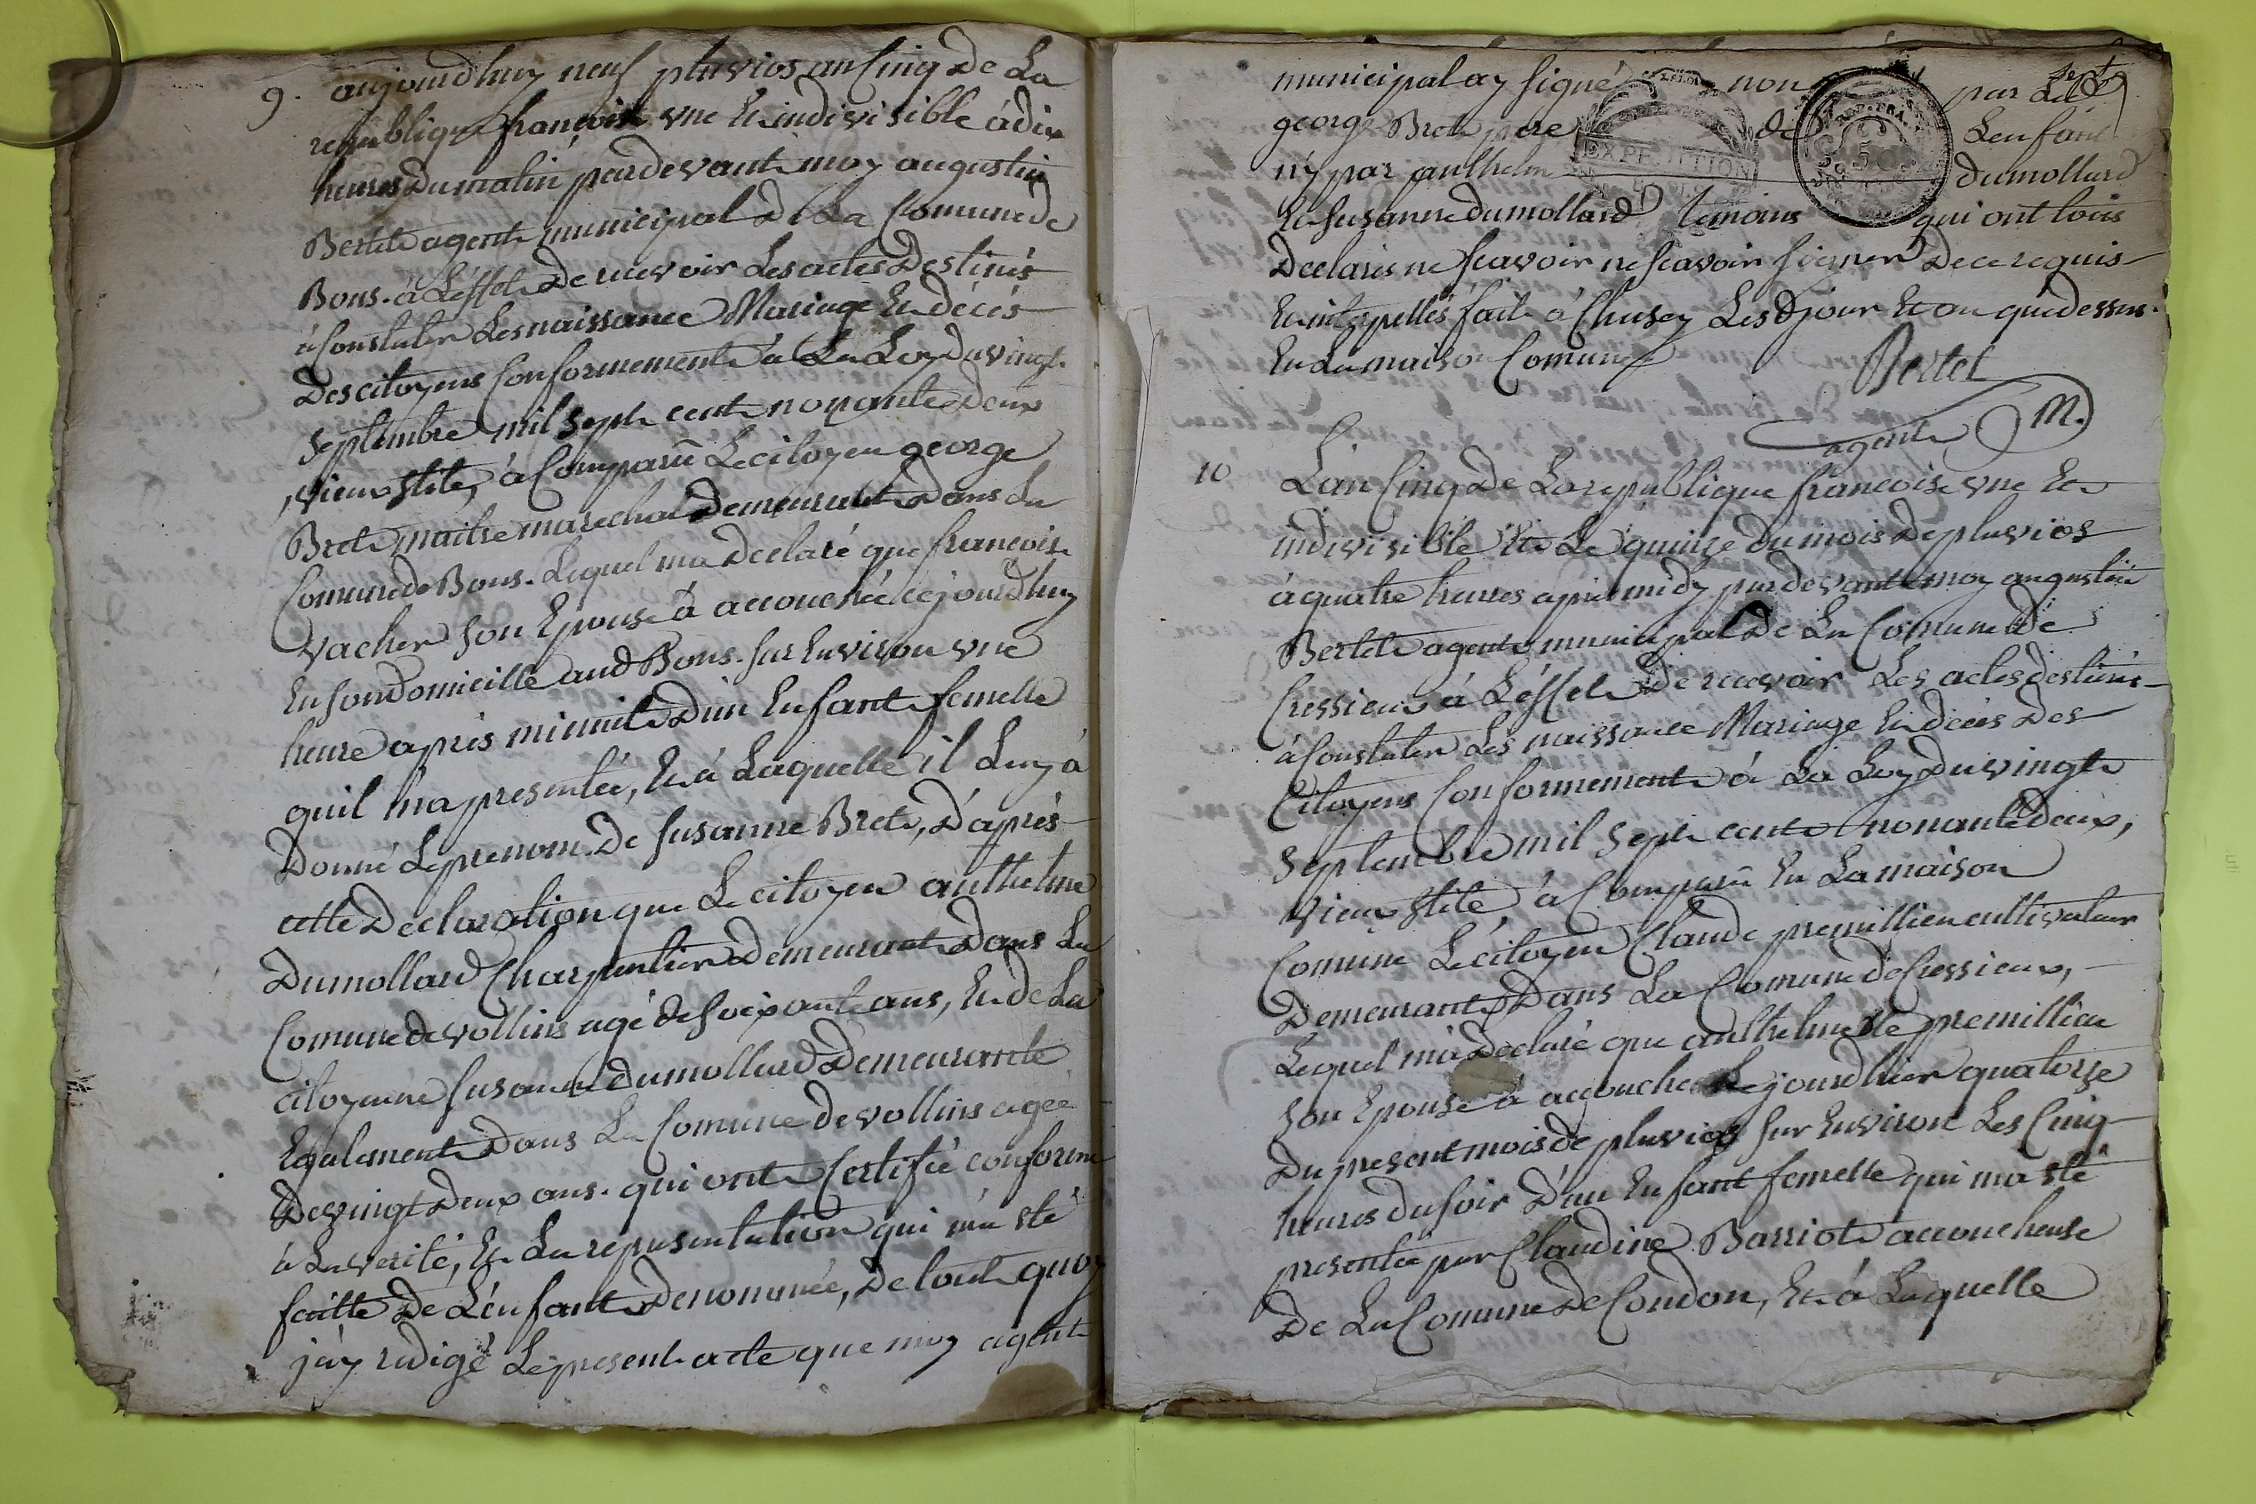 9. aujourdhuy neuf pluvios an Cinq De La
republique françoise vne Et indivisible à dix
heures Du matin pardevant moy augustin
Bertet agent municipal De La Comune de
Bons. à L'effet De recevoir Les actes Destinés
à Constater Les naissance Mariage Et décès
Des citoyens Conformement à La Loy du vingt
Septembre mil Sept cent nonante Deux
vieux stile, à Comparû Le citoyen george
Bret maitre marechal Demeurant Dans La
Comune de Bons. Lequel ma Declaré que francoise
vacher son Epouse à accouchée cejourdhuy
En son Domicille aud Bons. sur Environ vne
heure après minuit D'un Enfant femelle
quil m'a presentée, Et à Laquelle il Luy à
Donné Le prenom De Susanne Bret, D'après
cette Declaration que Le citoyen anthelme
Dumollard Charpentier Demeurant Dans La
Comune de vollins agé De soixante ans, Et De La
citoyenne Susanne dumollard Demeurante
Egalement Dans La Comune de vollins agée
De vingt Deux ans. qui ont Certifié conforme
à La verité, Et La representation qui m'a eté
faitte De L'enfant Denommée, De tout quoy
j'ay redigé Le present acte que moy agent
Sept
municipal ay signé non par Led
george Bret pere de L'enfant
n'y par anthelm Dumollard
Et Susanne dumollard temoins qui ont touts
Declarés ne scavoir ne scavoir signer De ce requis
Et interpellés fait à Chusey Les d jour Et an que dessus.
En La maison Comune
Bertet
agent M.
10 L'an Cinq De La republique françoise vne Et
indivisible Et Le quinze du mois De pluvios
à quatre heures après midy pardevant moy augustin
Bertet agent municipal De La Comune de
Cressieux à L'effet De recevoir Les actes destinés
à Constater Les naissance Mariage Et décès Des
Citoyens Conformement à La Loy Du vingt
Septembre mil Sept cent nonante deux,
vieux stile, à Comparû En La maison
Comune Le citoyen Claude premillieu cultivateur
Demeurant Dans La Comune de Cressieux,
Lequel m'a Declaré que anthelmette premillieu
son Epouse à accouchée Le jourdhier quatorze
Du present mois de pluvios sur Environ Les Cinq
heures du soir D'un Enfant femelle qui m'a eté
presentée par Claudine Barriot accoucheuse
De La Comune De Condon, Et à Laquelle
EXPEDITION
REP. FRA.
50